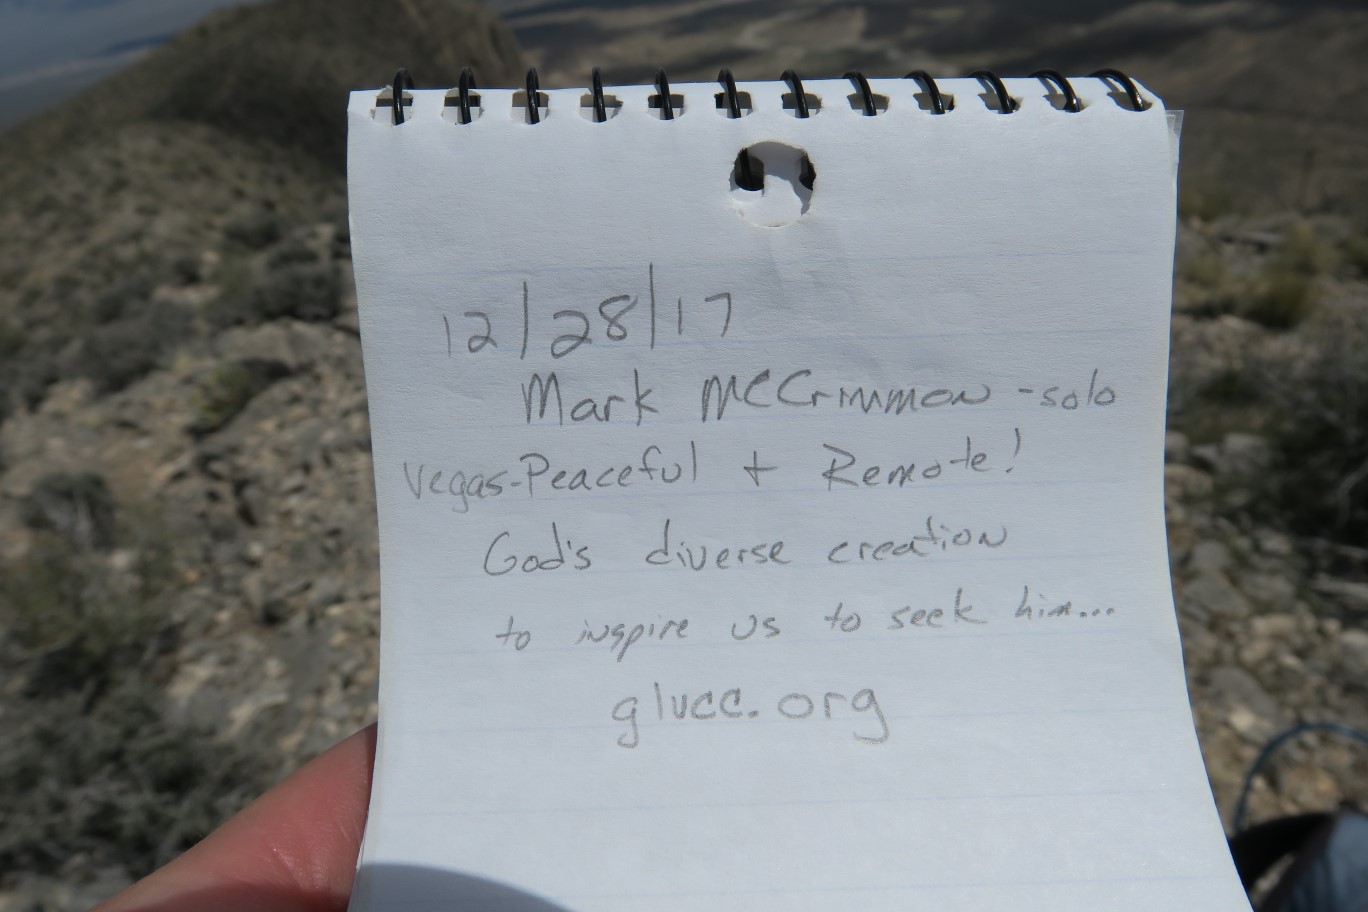 12/28/17
Mark McCrimmon - solo
Vegas - Peaceful + Remote!
God's diverse creation
to inspire us to seek him...
glvcc.org